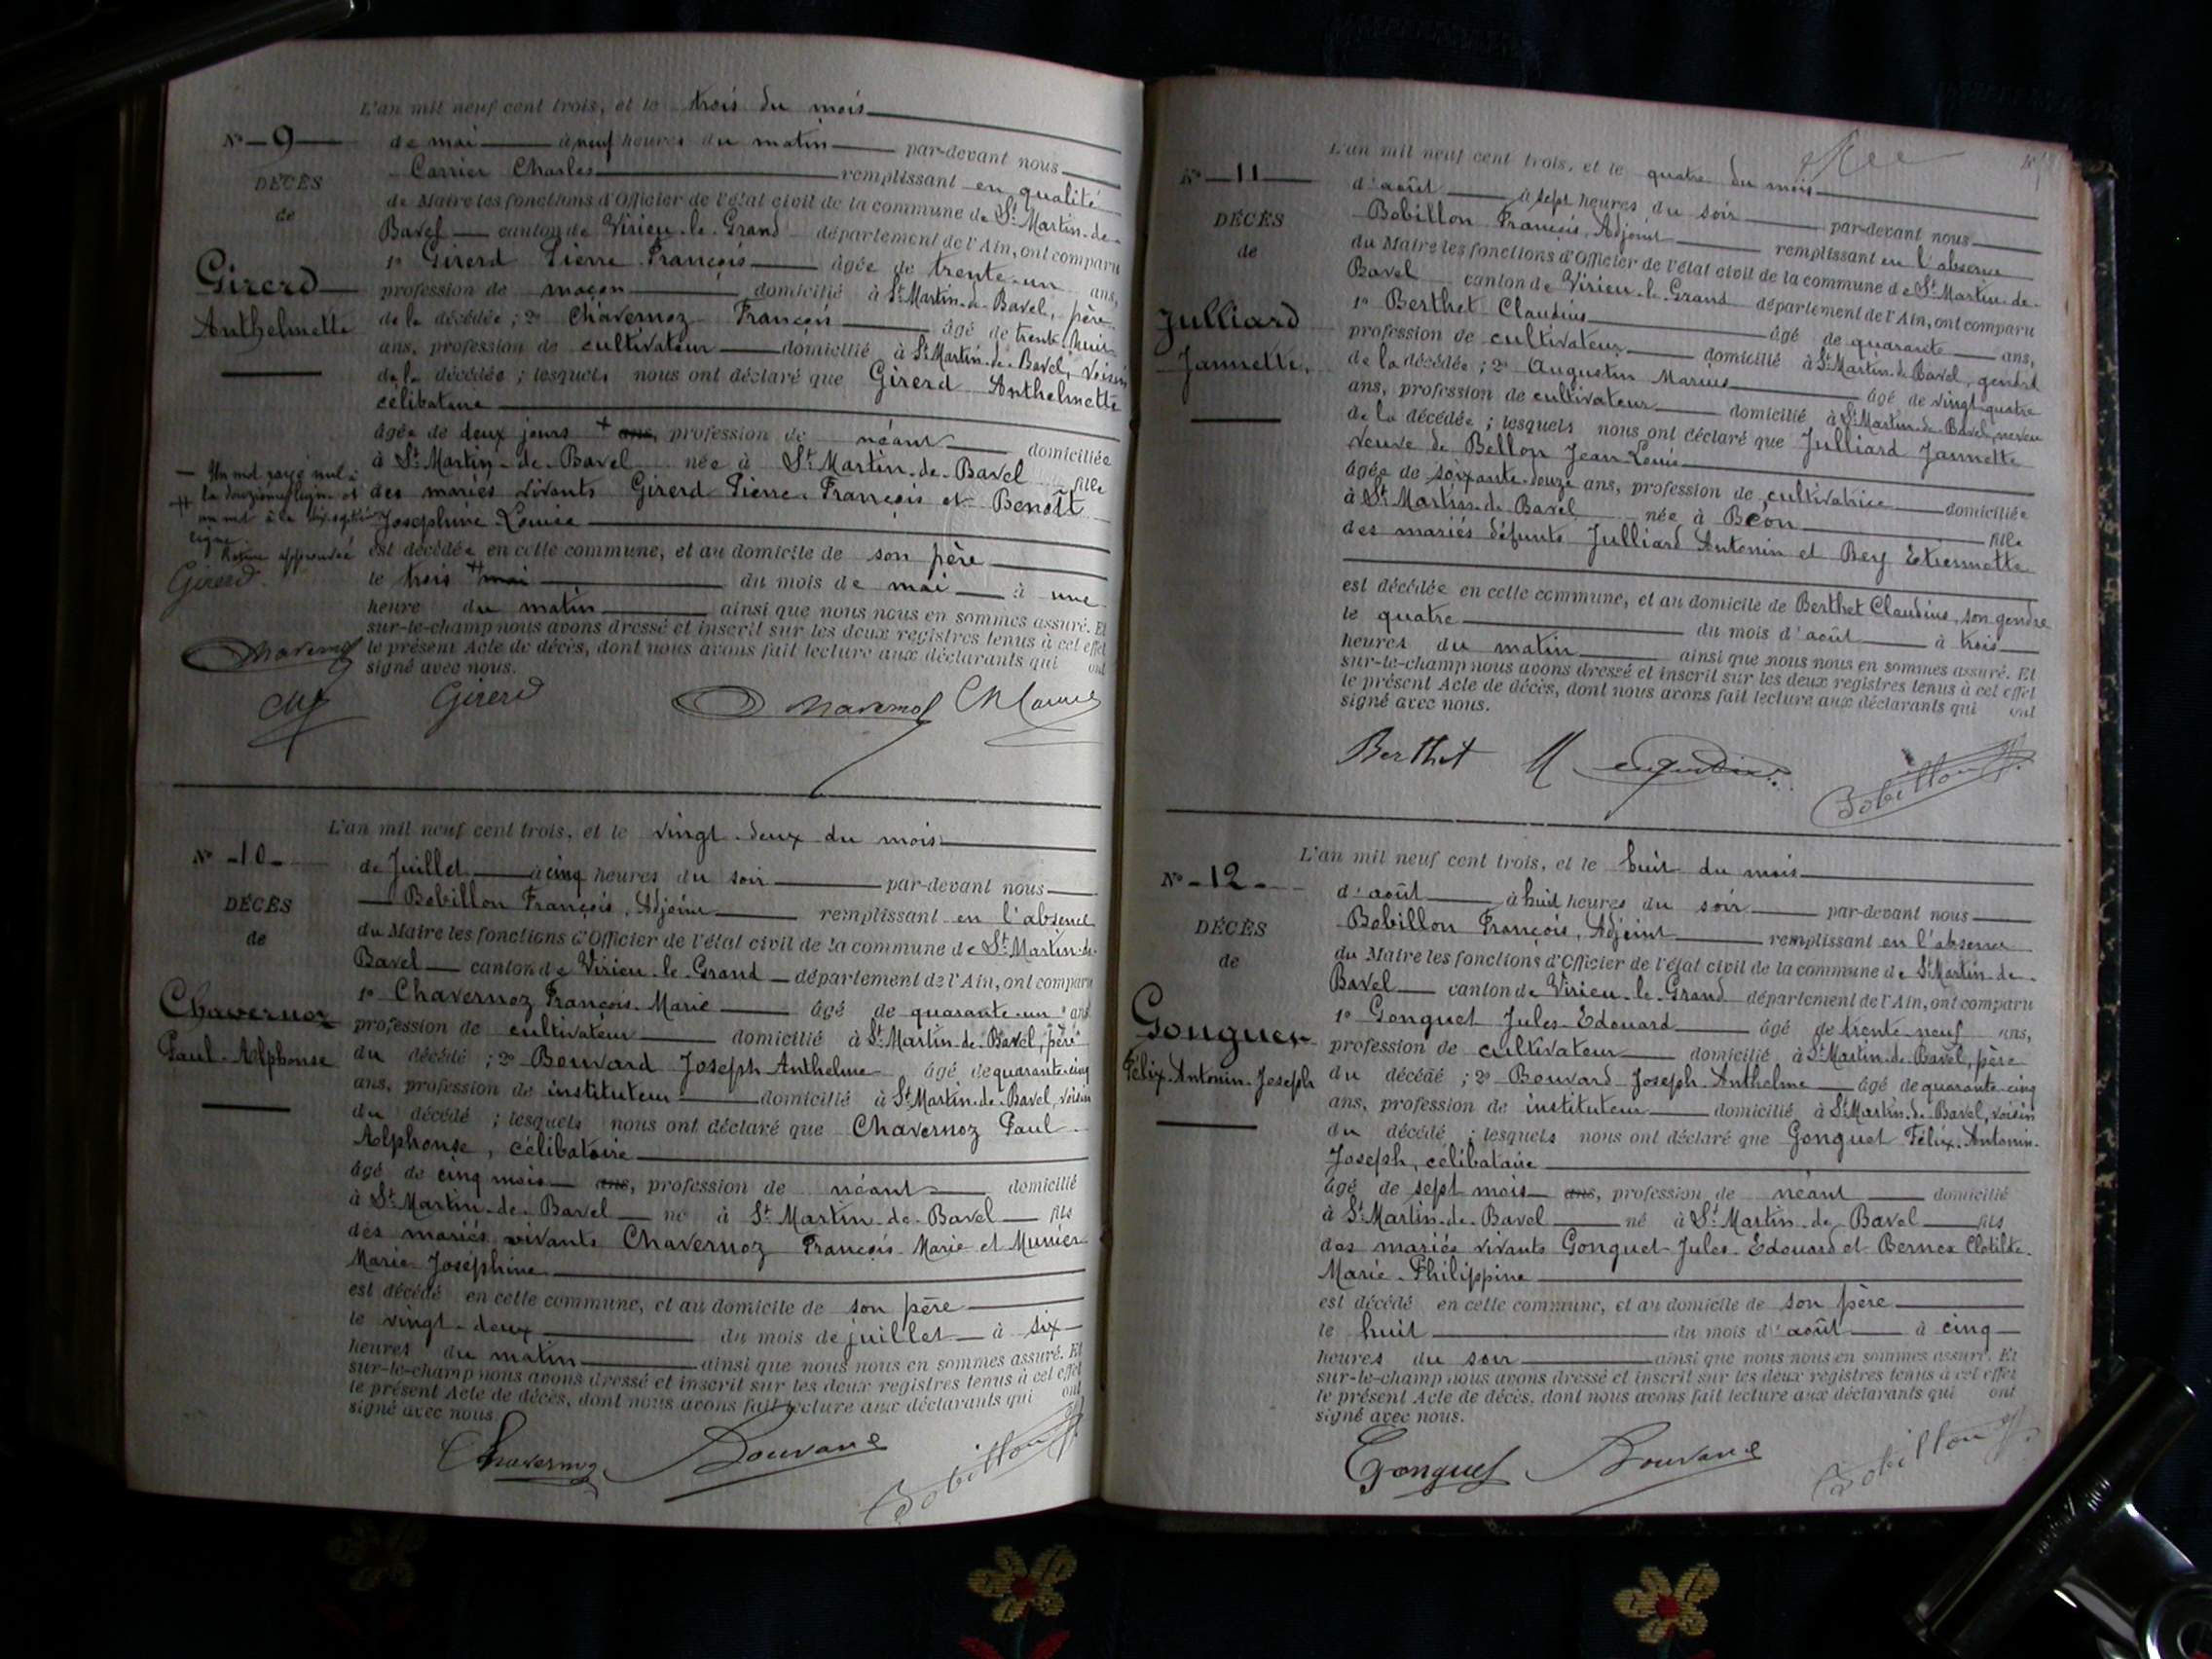 L'an mil neuf cent trois, et le trois du mois
N° 9
de mai à neuf heures du matin par-devant nous
Carrier Charles remplissant en qualité
DÉCÈS
de
de Maire les fonctions d'Officier de l'état civil de la commune de St Martin-de-
Bavel canton de Virieu-le-Grand département de l'Ain, ont comparu
Girerd
Anthelmette
1° Girerd Pierre François âgée de trente-un ans,
profession de maçon domicilié à St Martin-de-Bavel, père
de la décédée ; 2° Chavernoz François âgé de trente-huit
ans, profession de cultivateur domicilié à St Martin-de-Bavel, voisin
de la décédée ; lesquels nous ont déclaré que Girerd Anthelmette
célibataire
âgée de deux jours + ans, profession de néant domiciliée
à St Martin-de-Bavel née à St Martin-de-Bavel fille
des mariés vivants Girerd Pierre-François et Benoît
Joséphine Louise
Un mot rayé nul à
la douzième ligne et
un mot à la dix-septième
ligne.
approuvée
Girerd
est décédée en cette commune, et au domicile de son père
le trois ++ mai du mois de mai à une
heure du matin ainsi que nous nous en sommes assuré. Et
sur-le-champ nous avons dressé et inscrit sur les deux registres tenus à cet effet
le présent Acte de décès, dont nous avons fait lecture aux déclarants qui ont
signé avec nous.
Chavernoz
Girerd Chavernoz
L'an mil neuf cent trois, et le vingt-deux du mois
N° 10
de Juillet à cinq heures du soir par-devant nous
Bobillon François, Adjoint remplissant en l'absence
DÉCÈS
de
du Maire les fonctions d'Officier de l'état civil de la commune de St Martin-de-
Bavel canton de Virieu-le-Grand département de l'Ain, ont comparu
Chavernoz
Paul-Alphonse
1° Chavernoz François-Marie âgé de quarante-un ans
profession de cultivateur domicilié à St Martin-de-Bavel, père
du décédé ; 2° Bouvard Joseph Anthelme âgé de quarante-cinq
ans, profession de instituteur domicilié à St Martin-de-Bavel, voisin
du décédé ; lesquels nous ont déclaré que Chavernoz Paul-
Alphonse, célibatoire
âgé de cinq mois ans, profession de néant domicilié
à St Martin-de-Bavel né à St Martin-de-Bavel fils
des mariés vivants Chavernoz François-Marie et Munier
Marie-Joséphine
est décédé en cette commune, et au domicile de son père
le vingt-deux du mois de juillet à six
heures du matin ainsi que nous nous en sommes assuré. Et
sur-le-champ nous avons dressé et inscrit sur les deux registres tenus à cet effet
le présent Acte de décès, dont nous avons fait lecture aux déclarants qui ont
signé avec nous.
Chavernoz Bouvard Bobillon
L'an mil neuf cent trois, et le quatre du mois
N° 11
d'août à sept heures du soir par-devant nous
Bobillon François, Adjoint remplissant en l'absence
DÉCÈS
de
du Maire les fonctions d'Officier de l'état civil de la commune de St Martin-de-
Bavel canton de Virieu-le-Grand département de l'Ain, ont comparu
Julliard
Jannette.
1° Berthet Claudius âgé de quarante ans,
profession de cultivateur domicilié à St Martin-de-Bavel, gendre
de la décédée ; 2° Augustin Marius âgé de vingt-quatre
ans, profession de cultivateur domicilié à St Martin-de-Bavel, neveu
de la décédée ; lesquels nous ont déclaré que Julliard Jannette
veuve de Bellon Jean-Louis
âgée de soixante-douze ans, profession de cultivatrice domiciliée
à St Martin-de-Bavel née à Béon fille
des mariés défunts Julliard Antonin et Rey Etiennette
est décédée en cette commune, et au domicile de Berthet Claudius, son gendre
le quatre du mois d'août à trois
heures du matin ainsi que nous nous en sommes assuré. Et
sur-le-champ nous avons dressé et inscrit sur les deux registres tenus à cet effet
le présent Acte de décès, dont nous avons fait lecture aux déclarants qui ont
signé avec nous.
Berthet M Augustin Bobillon
L'an mil neuf cent trois, et le huit du mois
N° 12
d'août à huit heures du soir par-devant nous
Bobillon François, Adjoint remplissant en l'absence
DÉCÈS
de
du Maire les fonctions d'Officier de l'état civil de la commune de St Martin-de-
Bavel canton de Virieu-le-Grand département de l'Ain, ont comparu
Gonguet
Félix-Antonin-Joseph
1° Gonguet Jules-Edouard âgé de trente-neuf ans,
profession de cultivateur domicilié à St Martin-de-Bavel, père
du décédé ; 2° Bouvard Joseph-Anthelme âgé de quarante-cinq
ans, profession de instituteur domicilié à St Martin-de-Bavel, voisin
du décédé ; lesquels nous ont déclaré que Gonguet Félix-Antonin-
Joseph, célibataire
âgé de sept mois ans, profession de néant domicilié
à St Martin-de-Bavel né à St Martin-de-Bavel fils
des mariés vivants Gonguet-Jules-Edouard et Bernex Clotilde-
Marie-Philippine
est décédé en cette commune, et au domicile de son père
le huit du mois d'août à cinq
heures du soir ainsi que nous nous en sommes assuré. Et
sur-le-champ nous avons dressé et inscrit sur les deux registres tenus à cet effet
le présent Acte de décès, dont nous avons fait lecture aux déclarants qui ont
signé avec nous.
Gonguet Bouvard Bobillon